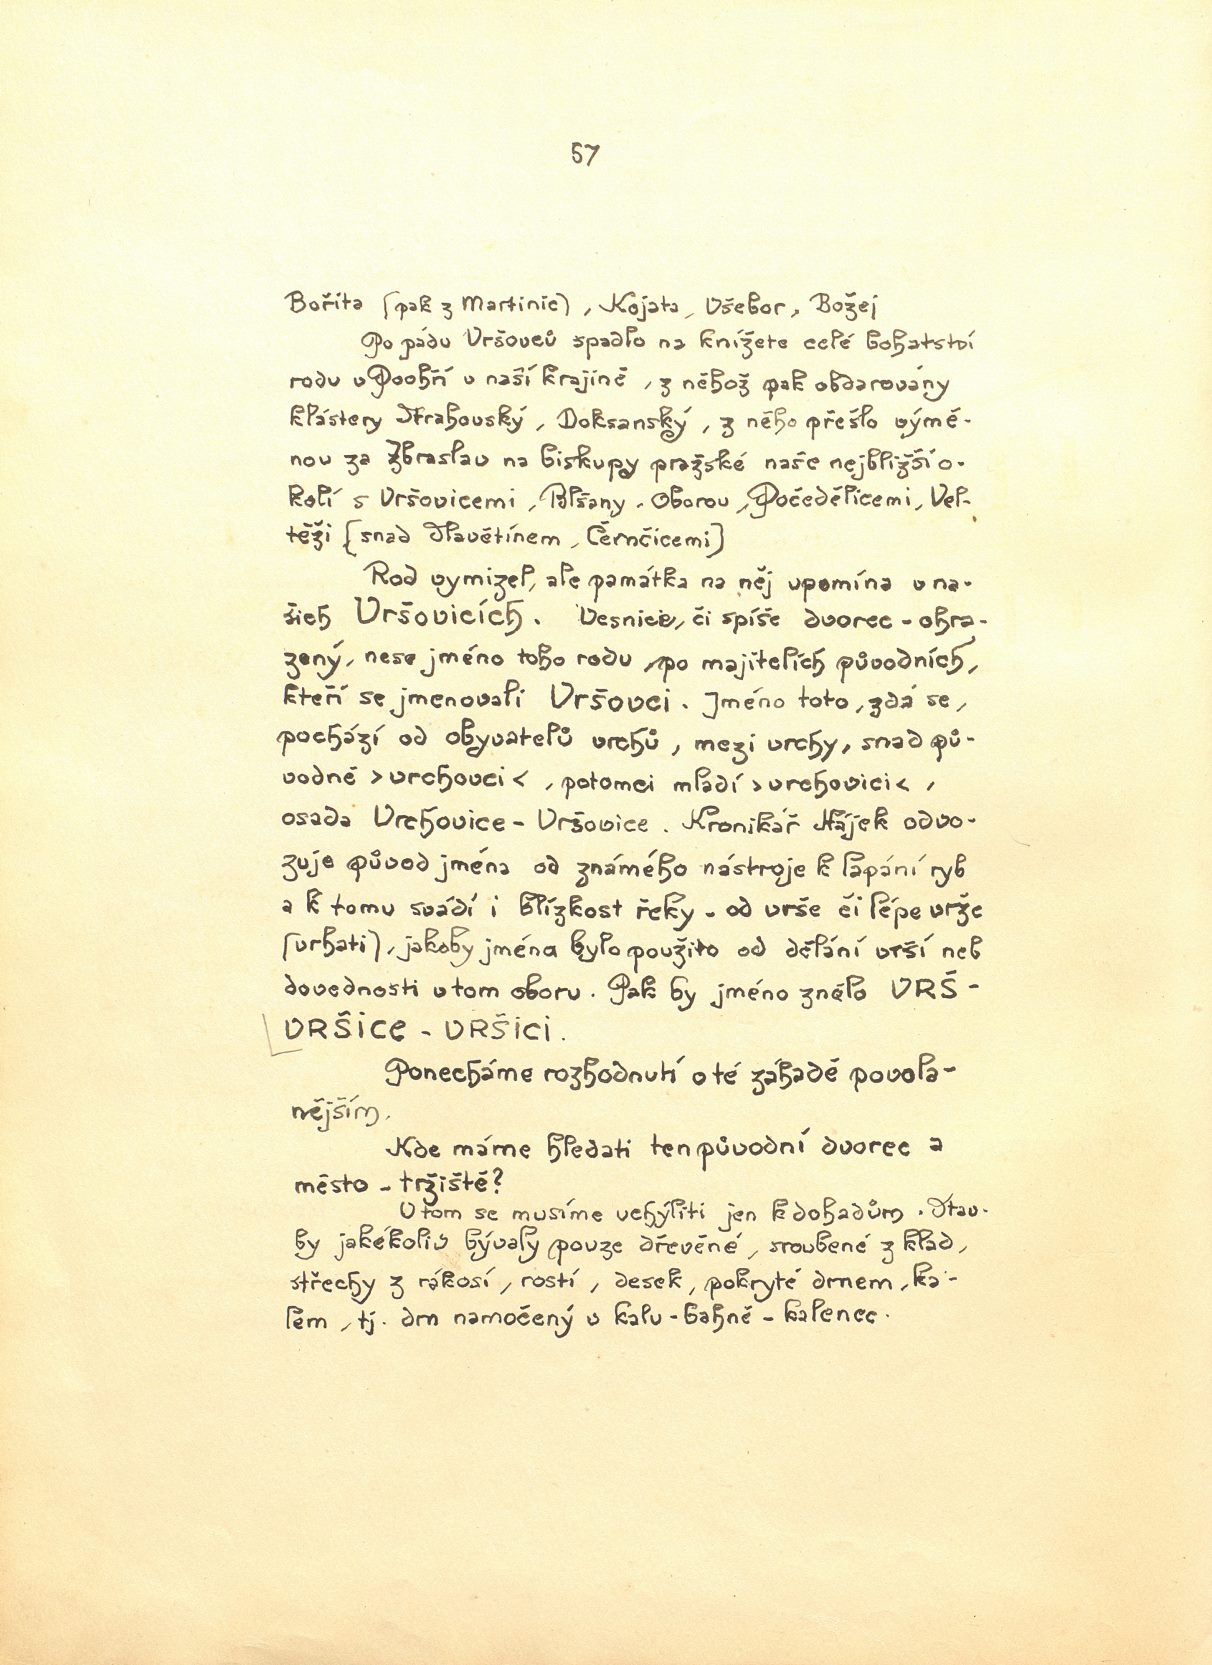 57
Bořita (pak z Martinic), Kojata, Všebor, Božej
Po pádu Vršovců spadlo na knížete celé bohatství
rodu v Poohří v naší krajině, z něhož pak obdarovány
kláštery Strahovský, Doksanský, z něho přešlo výmě-
nou za Zbraslav na biskupy pražské naše nejbližší o-
kolí s Vršovicemi, Blšany, Oborou, Počedělicemi, Vel-
těži (snad Slavětínem, Černčicemi)
Rod vymizel, ale památka na něj upomíná v na-
šich Vršovicích. Vesnice, či spíše dvorec - ohra-
zený, nese jméno toho rodu, po majitelích původních,
kteří se jmenovali Vršovci. Jméno toto, zdá se,
pochází od obyvatelů vrchů, mezi vrchy, snad pů-
vodně >vrchovci<, potomci mladí >vrchovici<,
osada Vrchovice - Vršovice. Kronikář Hájek odvo-
zuje původ jména od známého nástroje k lapání ryb
a k tomu svádí i blízkost řeky - od vrše či lépe vrže
(vrhati), jakoby jména bylo použito od dělání vrší neb
dovednosti v tom oboru. Pak by jméno znělo VRŠ -
VRŠICE - VRŠICI.
Ponecháme rozhodnutí o té záhadě povola-
nějším.
Kde máme hledati ten původní dvorec a
město - tržiště?
V tom se musíme uchýliti jen k dohadům. Stav-
by jakékoliv bývaly pouze dřevěné, sroubené z klad,
střechy z rákosí, rostí, desek, pokryté drnem, ka-
lem, tj. drn namočený v kalu - bahně - kalenec.